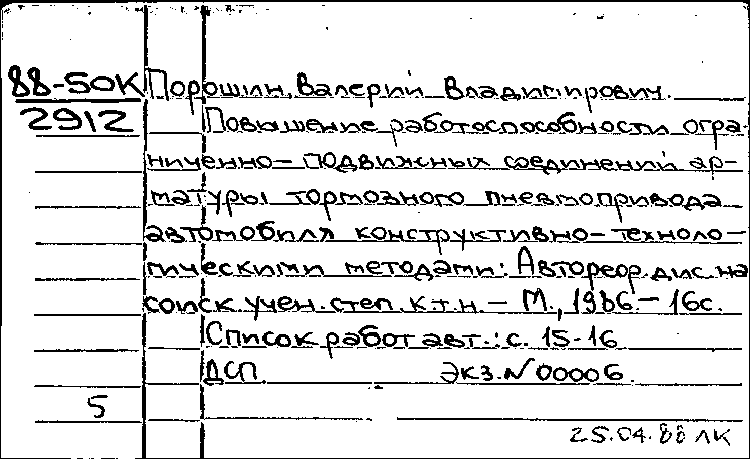 88-50К Порошин, Валерий Владимирович.
2912 Повышение работоспособности огра-
ниченно-подвижных соединений ар-
матуры тормозного пневмопривода
автомобиля конструктивно-техноло-
гическими методами: Автореф. дис. на
соиск. учен. степ. к.т.н. – М., 1986 – 16с.
Список работ авт.: с. 15-16
ДСП. Экз. № 00006.
5
25.04.88 ЛК